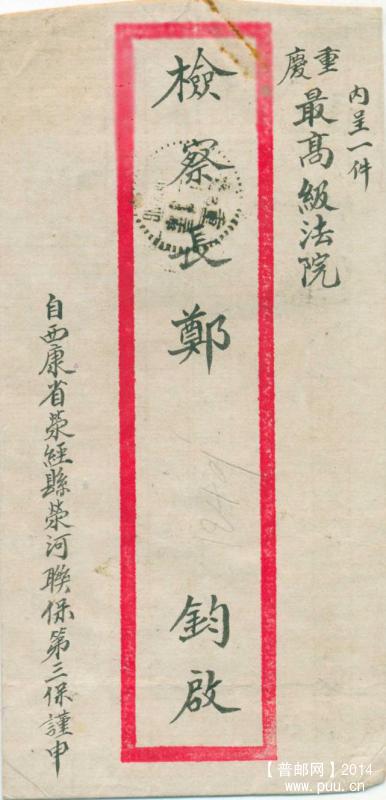 內呈一件
重慶
最高級法院
檢察長鄭 鈞啟
自西康省滎經縣滎河聯保第三保謹申
【普邮网】2014
www.puu.cn